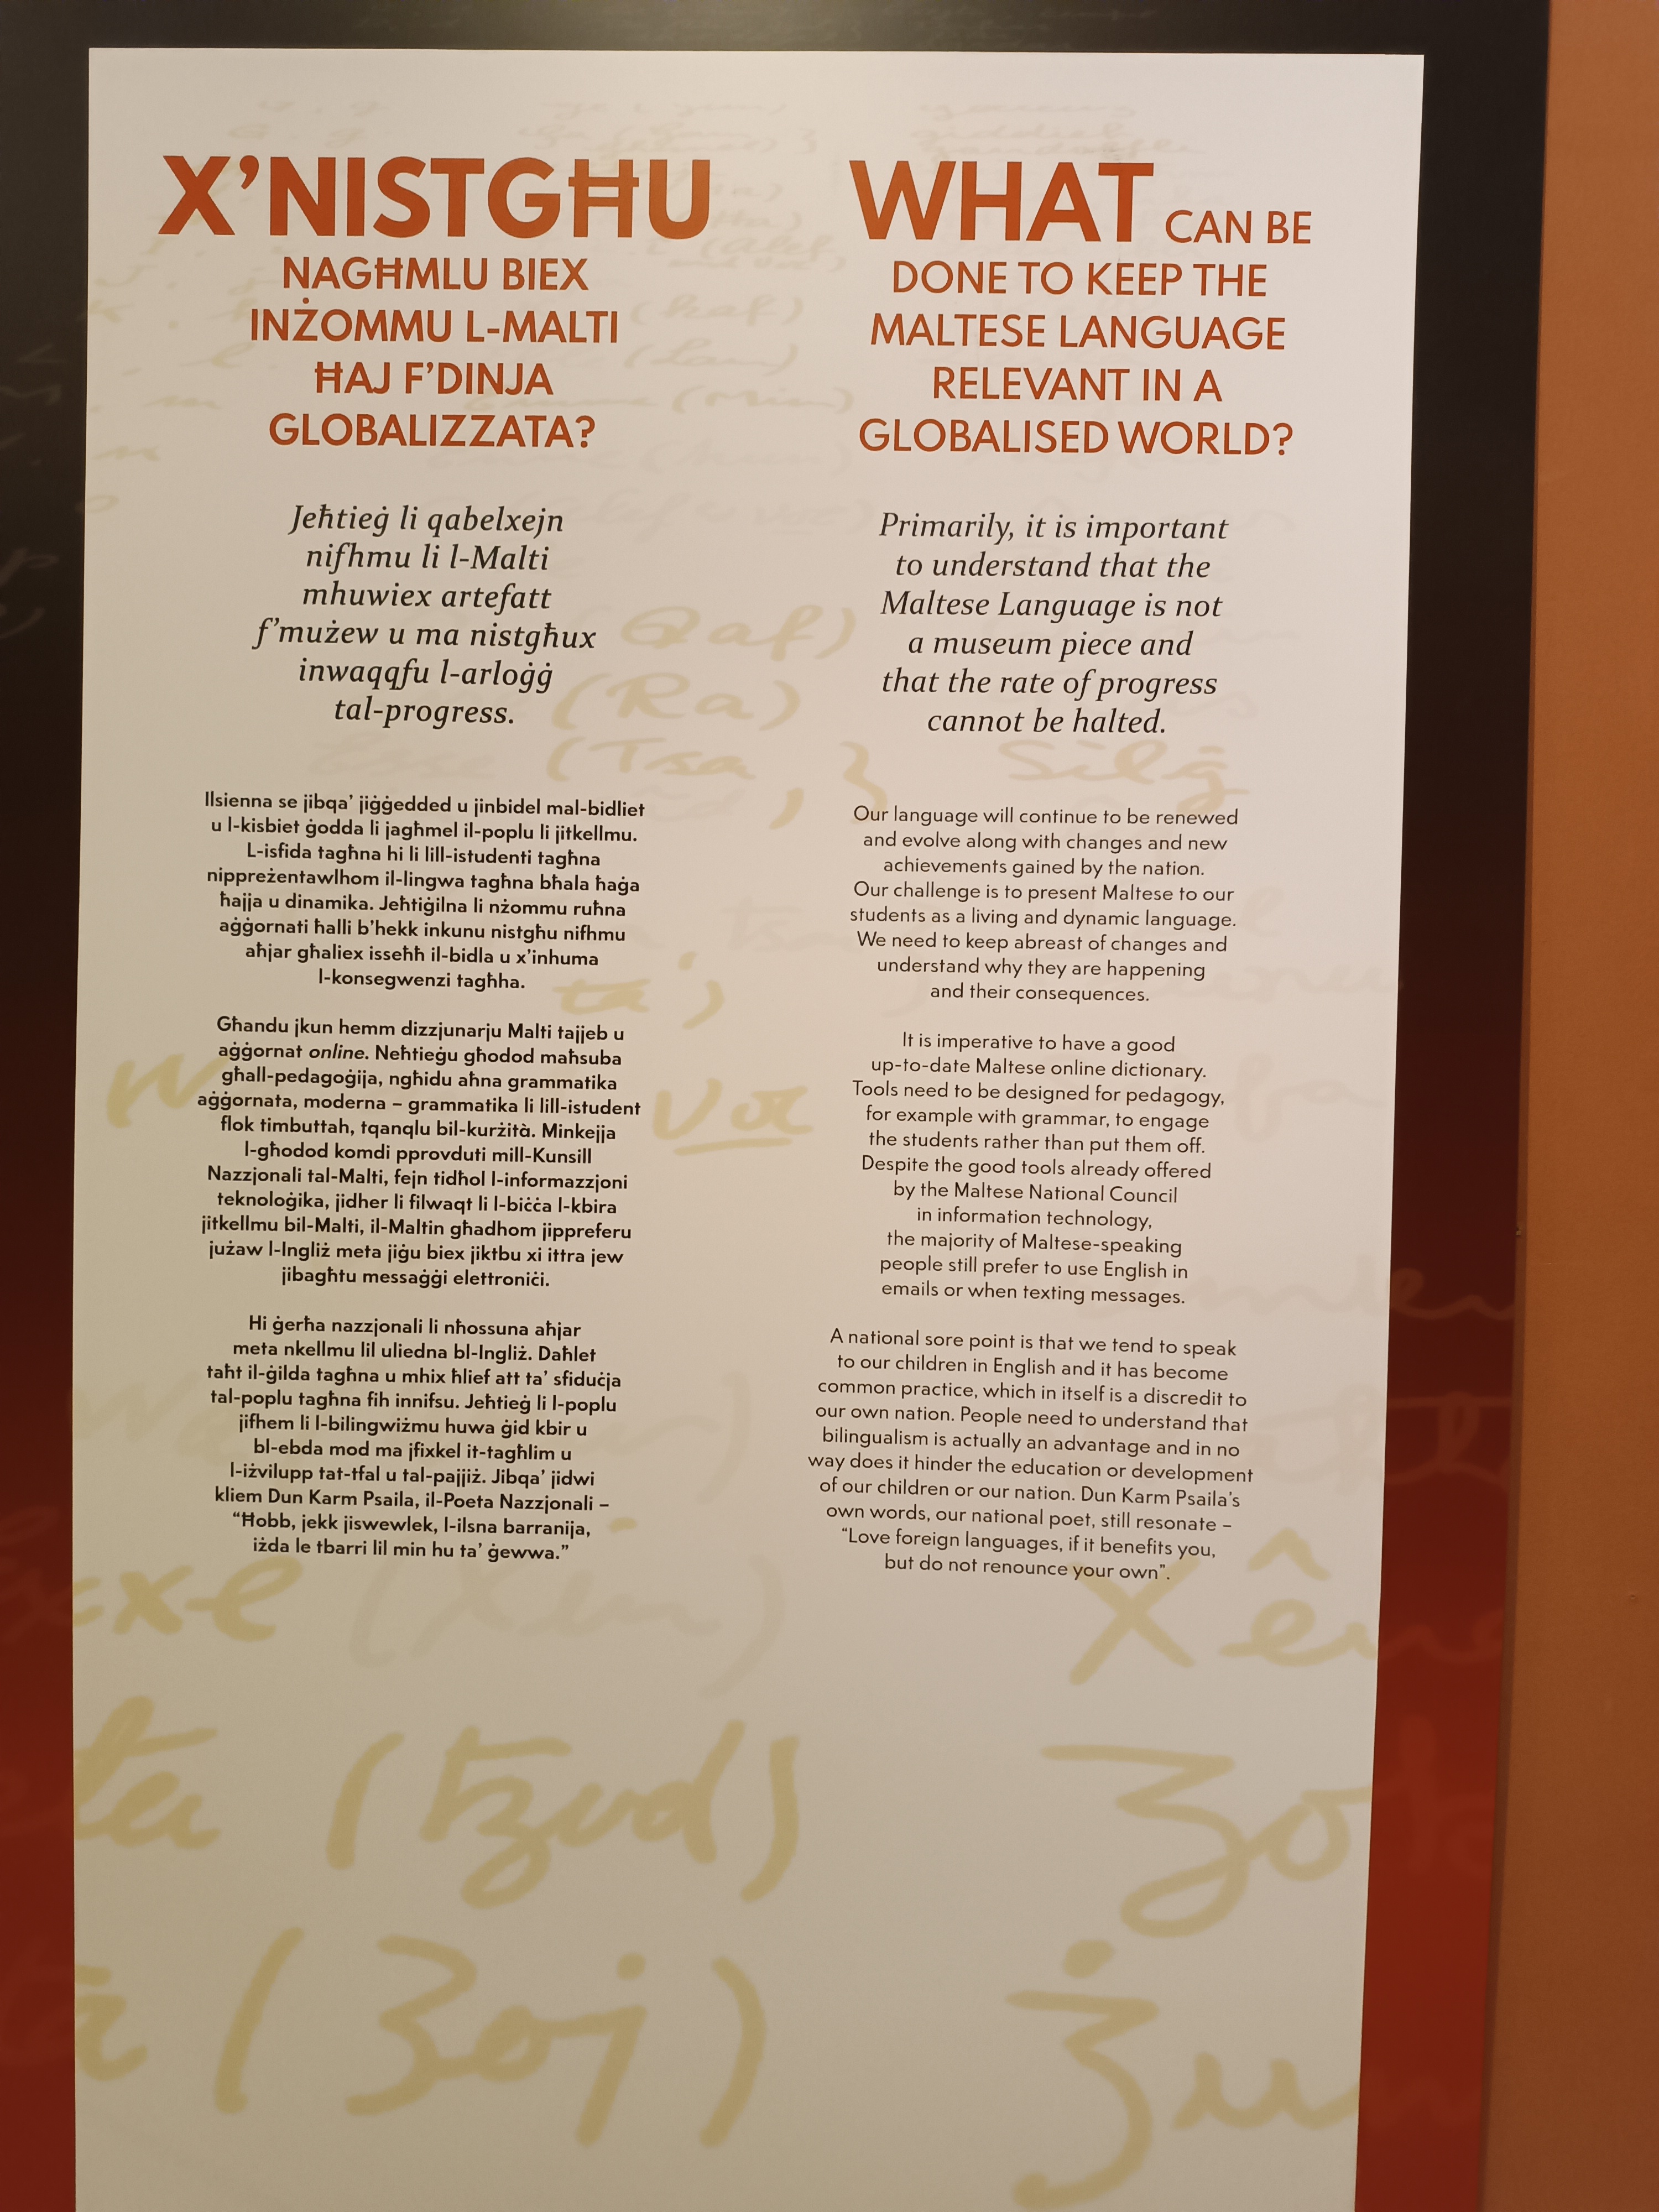 X'NISTGĦU
NAGĦMLU BIEX
INŻOMMU L-MALTI
ĦAJ F'DINJA
GLOBALIZZATA?
Jeħtieġ li qabelxejn
nifhmu li l-Malti
mhuwiex artefatt
f'mużew u ma nistgħux
inwaqqfu l-arloġġ
tal-progress.
Ilsienna se jibqa' jiġġedded u jinbidel mal-bidliet
u l-kisbiet ġodda li jagħmel il-poplu li jitkellmu.
L-isfida tagħna hi li lill-istudenti tagħna
nippreżentawlhom il-lingwa tagħna bħala ħaġa
ħajja u dinamika. Jeħtiġilna li nżommu ruħna
aġġornati ħalli b'hekk inkunu nistgħu nifhmu
aħjar għaliex isseħħ il-bidla u x'inhuma
l-konsegwenzi tagħha.
Għandu jkun hemm dizzjunarju Malti tajjeb u
aġġornat online. Neħtieġu għodod maħsuba
għall-pedagoġija, ngħidu aħna grammatika
aġġornata, moderna – grammatika li lill-istudent
flok timbuttah, tqanqlu bil-kurżità. Minkejja
l-għodod komdi pprovduti mill-Kunsill
Nazzjonali tal-Malti, fejn tidħol l-informazzjoni
teknoloġika, jidher li filwaqt li l-biċċa l-kbira
jitkellmu bil-Malti, il-Maltin għadhom jippreferu
jużaw l-Ingliż meta jiġu biex jiktbu xi ittra jew
jibagħtu messaġġi elettroniċi.
Hi ġerħa nazzjonali li nħossuna aħjar
meta nkellmu lil uliedna bl-Ingliż. Daħlet
taħt il-ġilda tagħna u mhix ħlief att ta' sfiduċja
tal-poplu tagħna fih innifsu. Jeħtieġ li l-poplu
jifhem li l-bilingwiżmu huwa ġid kbir u
bl-ebda mod ma jfixkel it-tagħlim u
l-iżvilupp tat-tfal u tal-pajjiż. Jibqa' jidwi
kliem Dun Karm Psaila, il-Poeta Nazzjonali –
“Ħobb, jekk jiswewlek, l-ilsna barranija,
iżda le tbarri lil min hu ta' ġewwa.”
WHAT CAN BE
DONE TO KEEP THE
MALTESE LANGUAGE
RELEVANT IN A
GLOBALISED WORLD?
Primarily, it is important
to understand that the
Maltese Language is not
a museum piece and
that the rate of progress
cannot be halted.
Our language will continue to be renewed
and evolve along with changes and new
achievements gained by the nation.
Our challenge is to present Maltese to our
students as a living and dynamic language.
We need to keep abreast of changes and
understand why they are happening
and their consequences.
It is imperative to have a good
up-to-date Maltese online dictionary.
Tools need to be designed for pedagogy,
for example with grammar, to engage
the students rather than put them off.
Despite the good tools already offered
by the Maltese National Council
in information technology,
the majority of Maltese-speaking
people still prefer to use English in
emails or when texting messages.
A national sore point is that we tend to speak
to our children in English and it has become
common practice, which in itself is a discredit to
our own nation. People need to understand that
bilingualism is actually an advantage and in no
way does it hinder the education or development
of our children or our nation. Dun Karm Psaila's
own words, our national poet, still resonate –
“Love foreign languages, if it benefits you,
but do not renounce your own”.
(Qaf)
(Ra)
(Tsa, } Silġ
(Xin)
(tzud)
(Zoj)